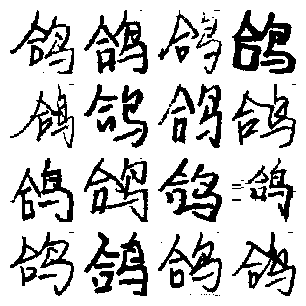 鸽鸽鸽鸽
鸽鸽鸽鸽
鸽鸽鸽鸽
鸽鸽鸽鸽